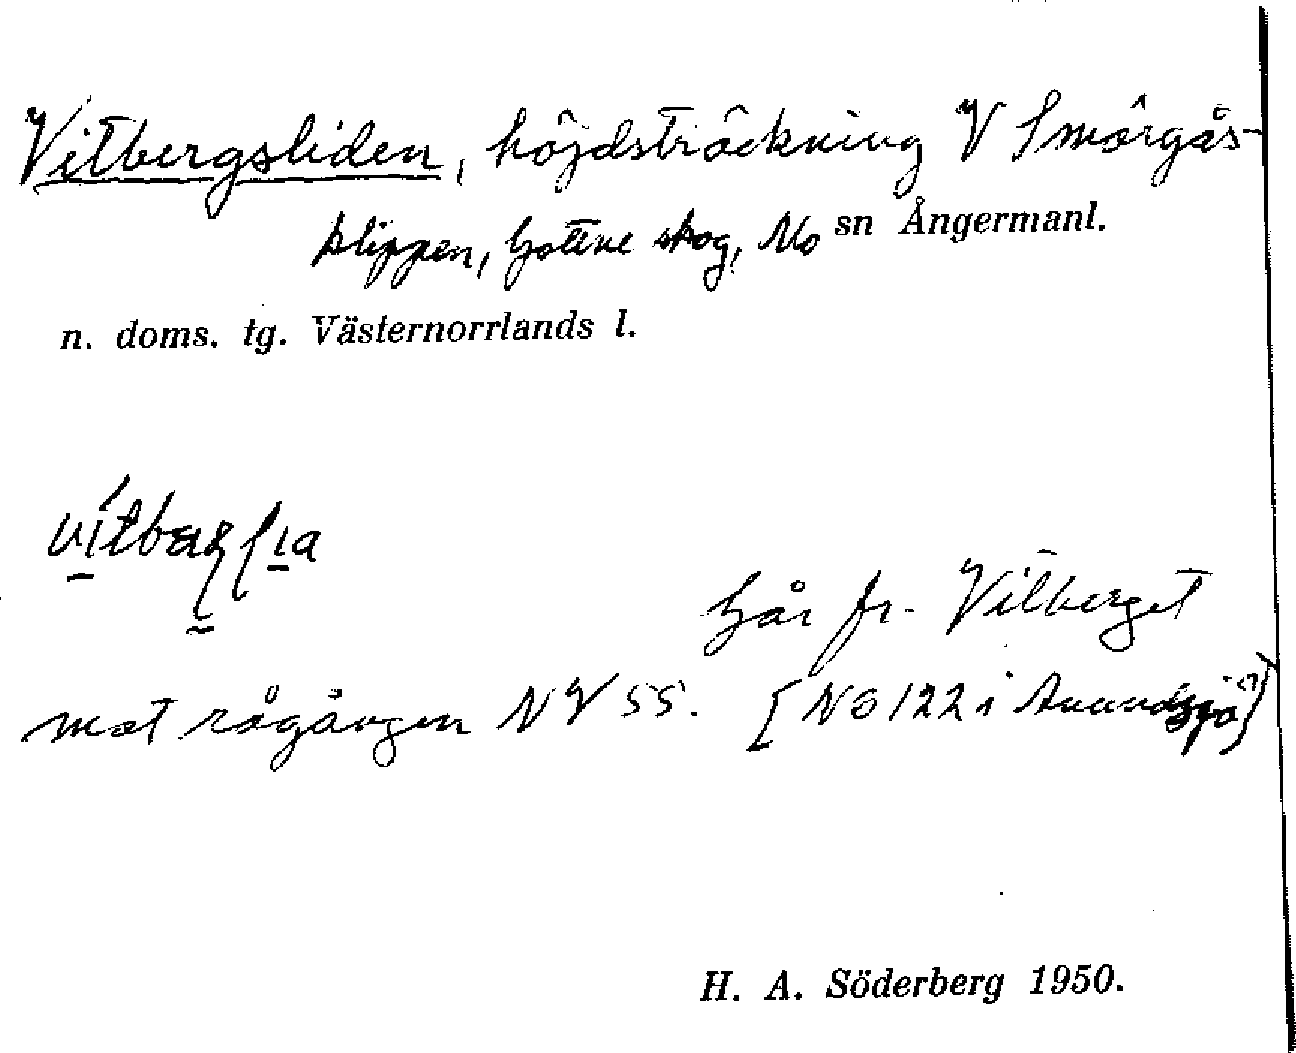 Vitbergsliden, höjdsträckning V Smörgås-
klippen, Gottne skog, Mo sn Ångermanl.
n. doms. tg. Västernorrlands l.
Går fr. Vitberget
mot rågången NV 55. [NO 122 i Anundsjö]
H. A. Söderberg 1950.